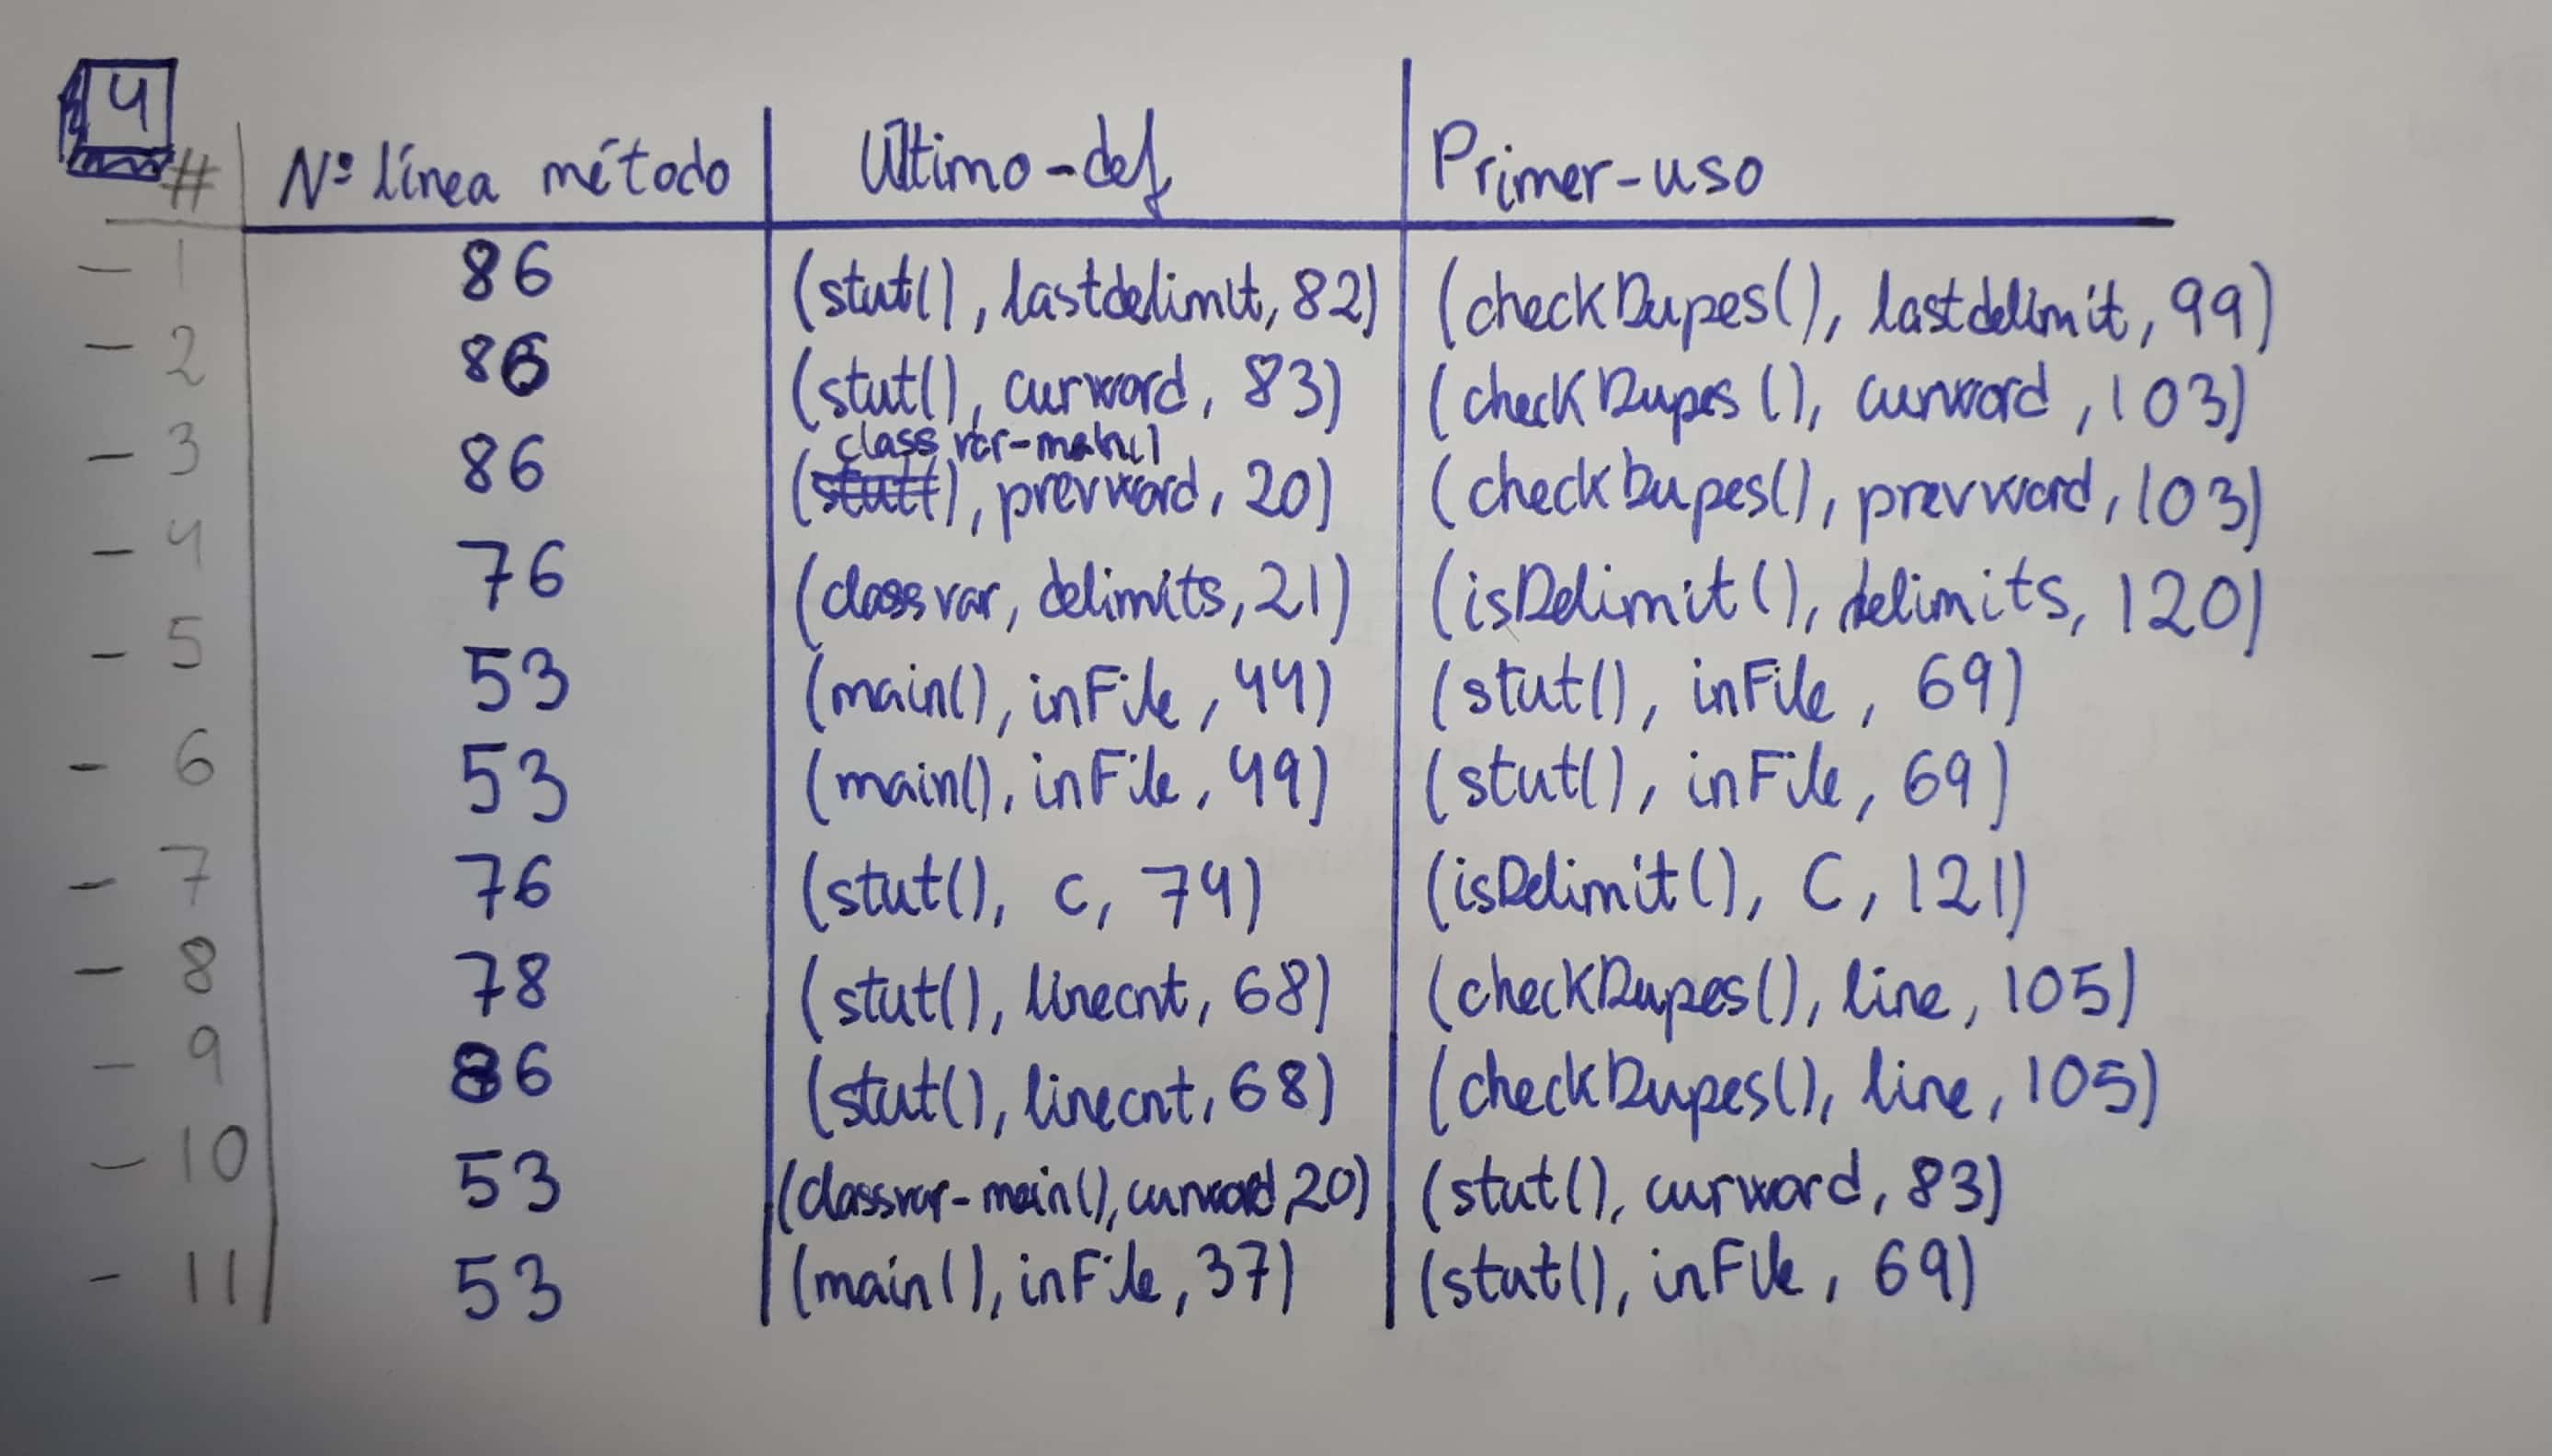 4
# Nº línea método Último-def Primer-uso
- 1 86 (stut(), lastdelimit, 82) (checkDupes(), lastdelimit, 99)
- 2 86 (stut(), curword, 83) (checkDupes(), curword, 103)
class var-main()
- 3 86 (stut(), prevword, 20) (checkDupes(), prevword, 103)
- 4 76 (class var, delimits, 21) (isDelimit(), delimits, 120)
- 5 53 (main(), inFile, 44) (stut(), inFile, 69)
- 6 53 (main(), inFile, 49) (stut(), inFile, 69)
- 7 76 (stut(), c, 74) (isDelimit(), C, 121)
- 8 78 (stut(), linecnt, 68) (checkDupes(), line, 105)
- 9 86 (stut(), linecnt, 68) (checkDupes(), line, 105)
- 10 53 (classvar-main(), curword, 20) (stut(), curword, 83)
- 11 53 (main(), inFile, 37) (stut(), inFile, 69)